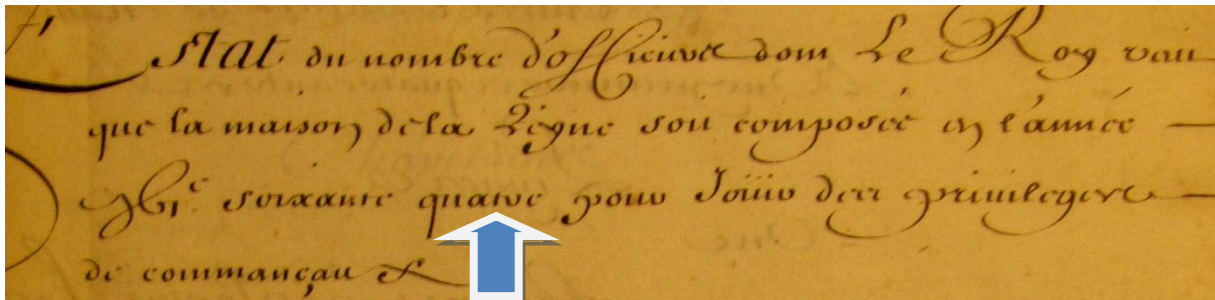 Estat du nombre d'officiers dont Le Roy veut
que la maison de la Reyne soit composée en l'année
soixante quatre pour Jouir des privileges
de commançaux &